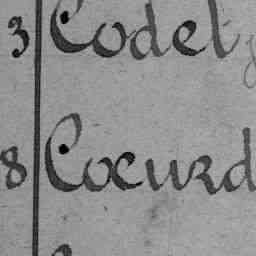 3 Codet
8 Coeurd